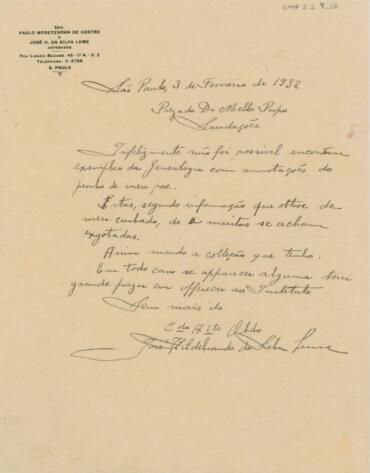 DRS.
PAULO MORETZSOHN DE CASTRO
E
JOSÉ H. DA SILVA LEME
ADVOGADOS
RUA LIBERO BADARÓ, 45 - 17 A. - S. 2
TELEPHONE: 2-6789
S. PAULO
São Paulo, 3 de Fevereiro de 1932
Prezado Dr Mello Pupo
Saudações.
Infelizmente não foi possivel encontrar
exemplar da Genealogia com annotações do
punho de meu pae.
Estas, segundo informação que obtive de
meu cunhado, de ha muitos se acham
exgotadas.
Assim mando a collecção que tenho.
Em todo caso se apparecer alguma terei
grande prazer em offerecer ao Instituto
Sem mais do
Cdo Atto Obdo
José Hildebrando da Silva Leme